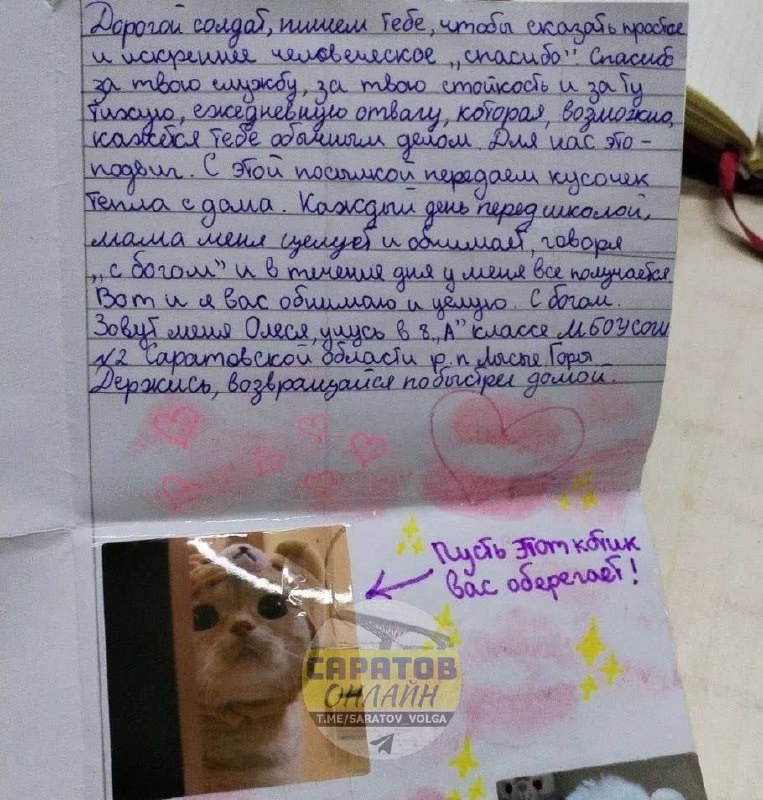 Дорогой солдат, пишем тебе, чтобы сказать простое
и искреннее человеческое „спасибо". Спасибо
за твою службу, за твою стойкость и за ту
тихую, ежедневную отвагу, которая, возможно,
кажется тебе обычным делом. Для нас это –
подвиг. С этой посылкой передаем кусочек
тепла с дама. Каждый день перед школой,
мама меня целует и обнимает, говоря
„с богом" и в течение дня у меня все получается.
Вот и я вас обнимаю и целую. С богом.
Зовут меня Олеся, учусь в 8 „А" классе МБОУСОШ
№2 Саратовской области р.п Лысые Горы
Держись, возвращайся побыстрее домой.
Пусть этот котик
вас оберегает!
САРАТОВ
ОНЛАЙН
T.ME/SARATOV_VOLGA